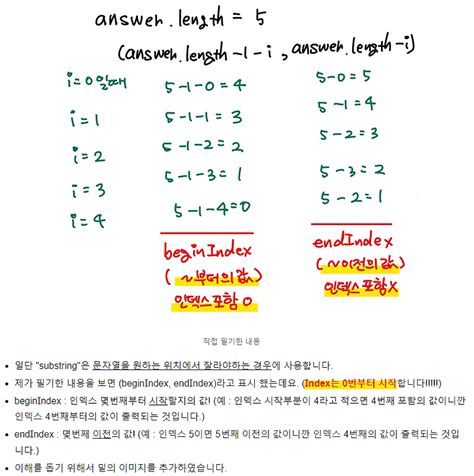 answer.length = 5
(answer.length-1-i, answer.length-i)
i=0일때 5-1-0=4 5-0=5
i=1 5-1-1=3 5-1=4
i=2 5-1-2=2 5-2=3
i=3 5-1-3=1 5-3=2
i=4 5-1-4=0 5-2=1
beginIndex endIndex
(~부터의 값) (~이전의 값)
인덱스 포함 O 인덱스 포함 X
직접 필기한 내용
일단 "substring"은 문자열을 원하는 위치에서 잘라야하는 경우에 사용합니다.
제가 필기한 내용을 보면 (beginIndex, endIndex)라고 표시 했는데요. (Index는 0번부터 시작합니다!!!!!)
beginIndex : 인덱스 몇번째부터 시작할지의 값! (예 : 인덱스 시작부분이 4라고 적으면 4번째 포함의 값이니깐
인덱스 4번째부터의 값이 출력되는 것입니다.)
endIndex : 몇번째 이전의 값! (예 : 인덱스 5이면 5번째 이전의 값이니깐 인덱스 4번째의 값이 출력되는 것입니다.)
이해를 돕기 위해서 밑의 이미지를 추가하였습니다.